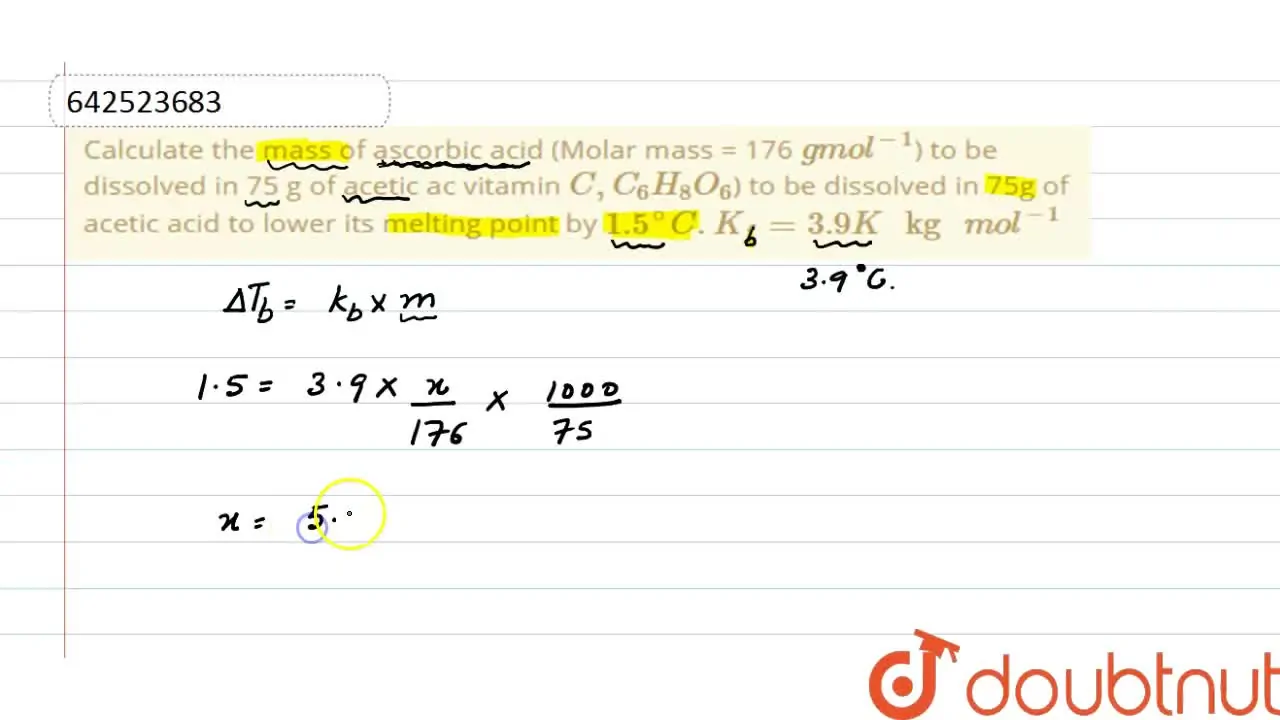 642523683
Calculate the mass of ascorbic acid (Molar mass = 176 gmol⁻¹) to be
dissolved in 75 g of acetic ac vitamin C, C₆H₈O₆) to be dissolved in 75g of
acetic acid to lower its melting point by 1.5°C. K_b = 3.9K kg mol⁻¹
3.9°C.
ΔT_b = k_b × m
1.5 = 3.9 × x/176 × 1000/75
x = 5.
doubtnut